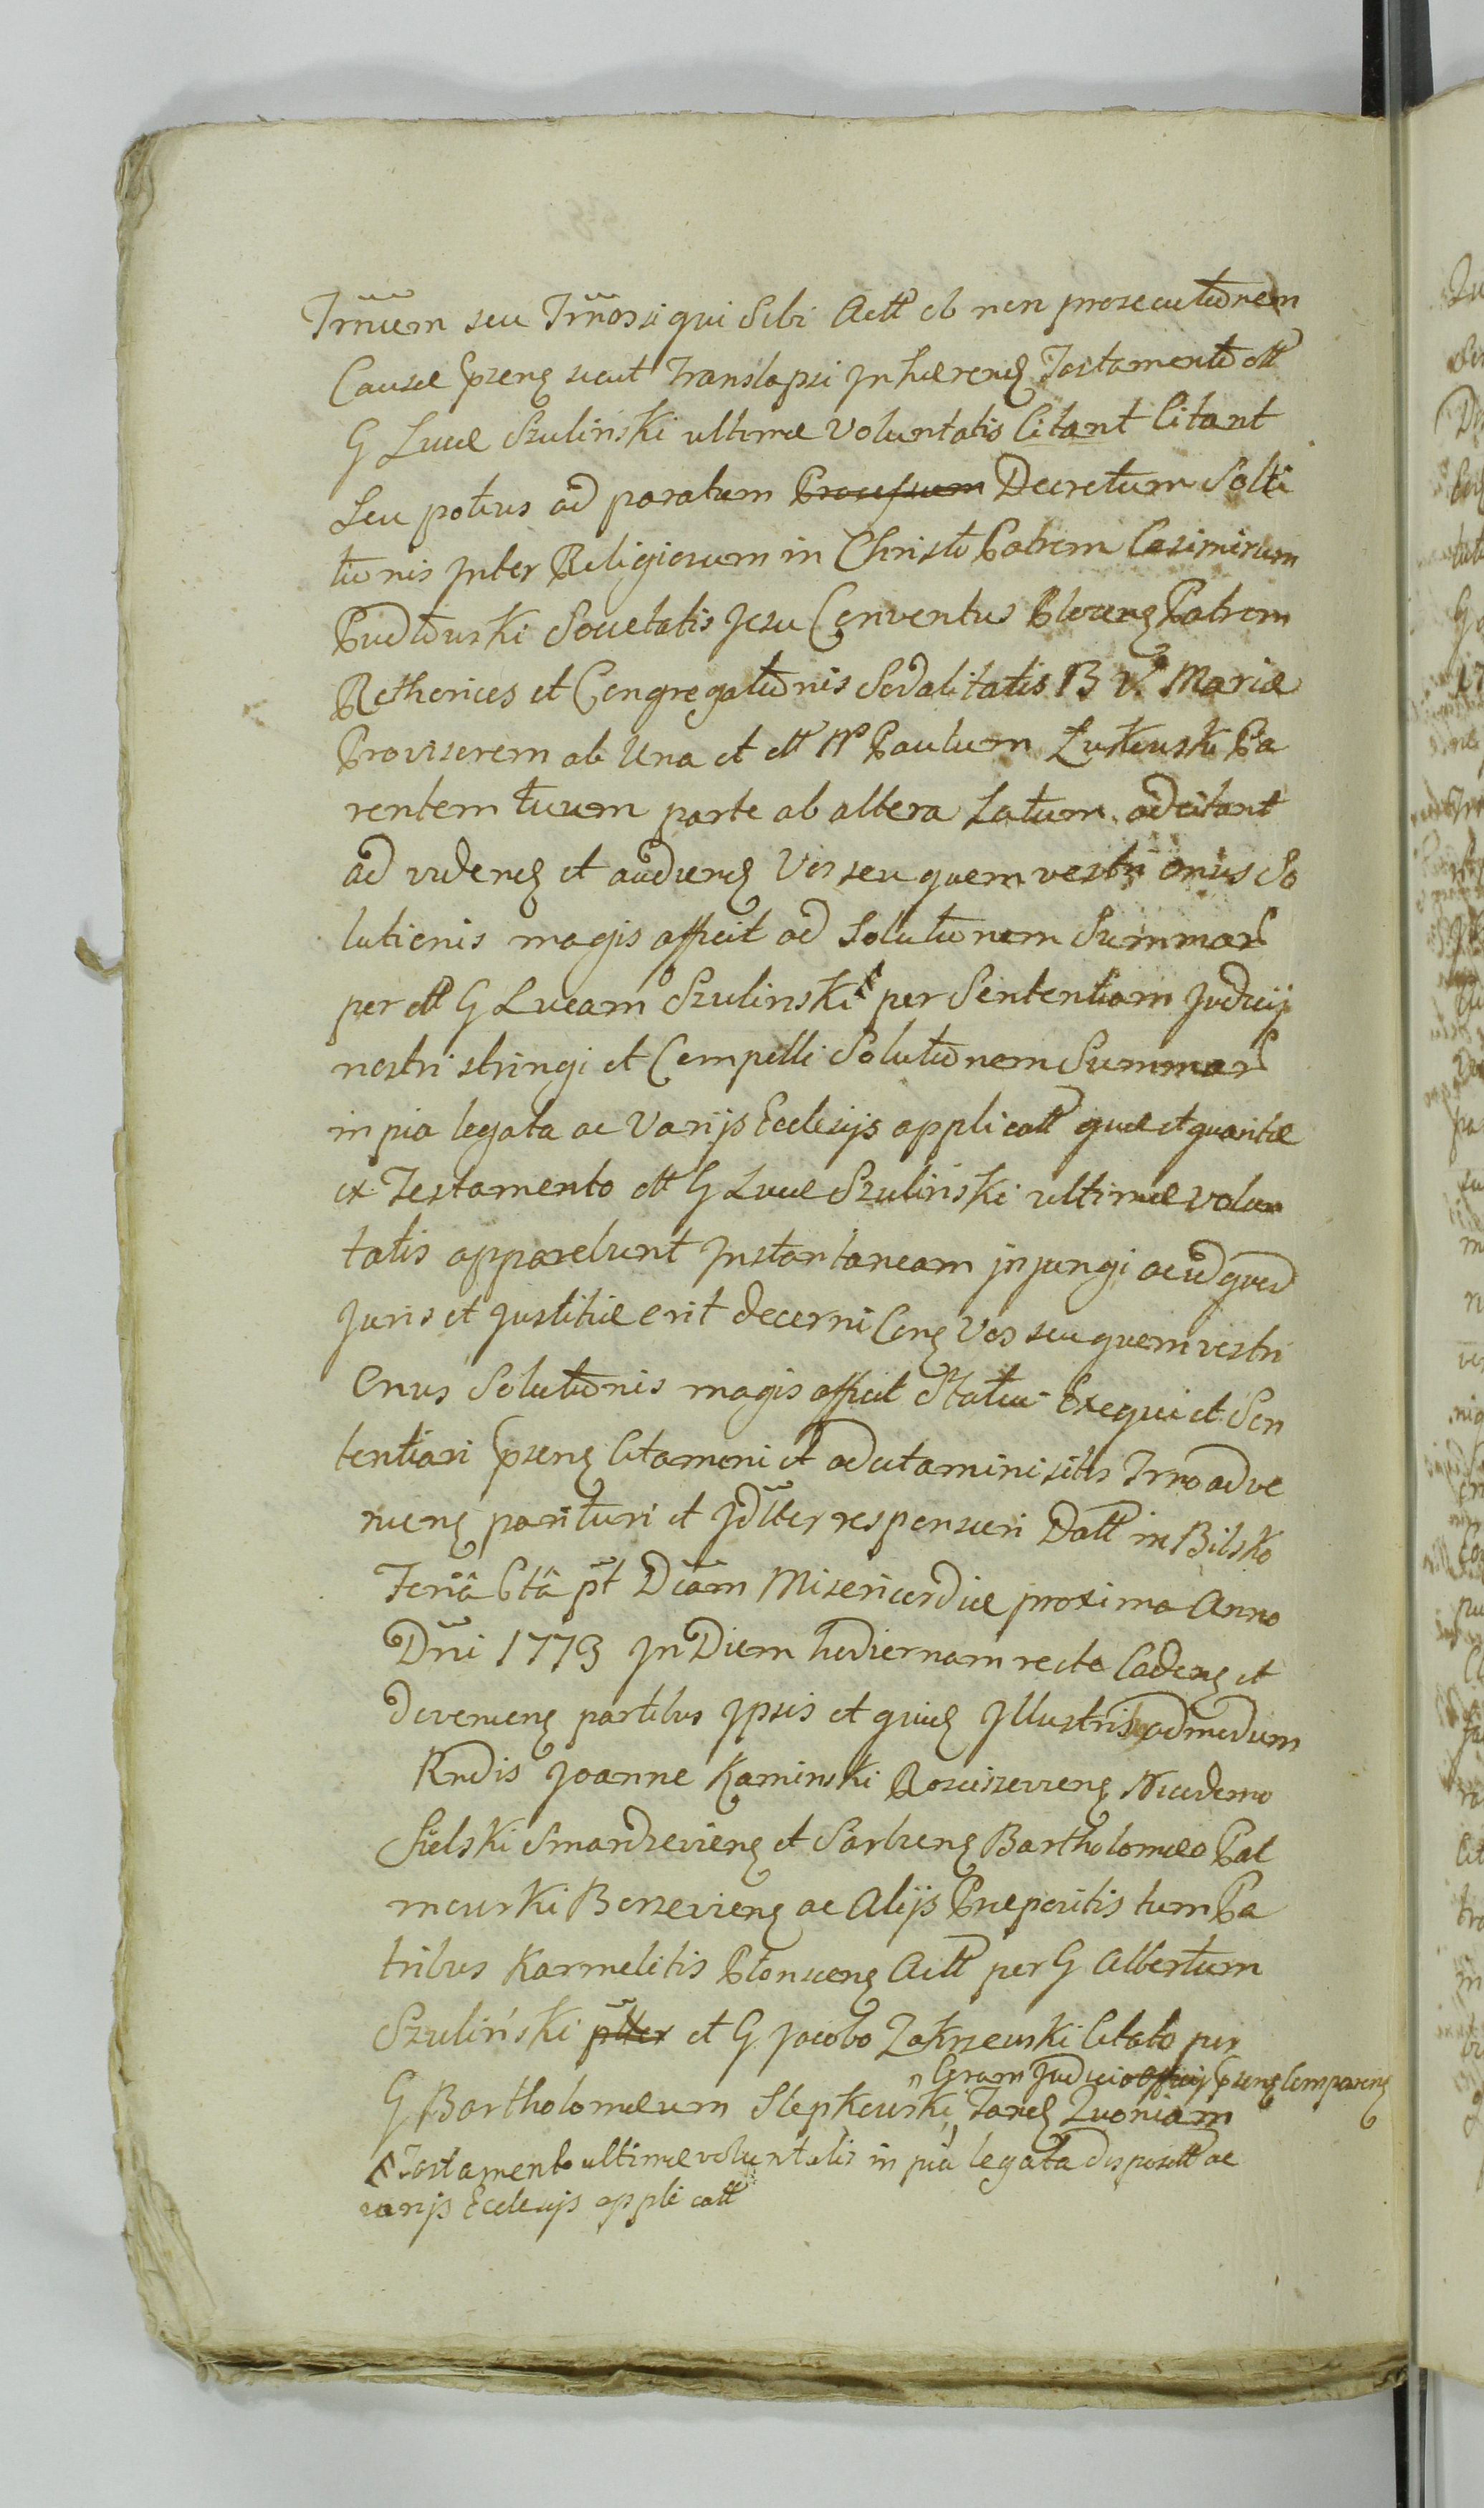 Trnum seu Trnos si qui Sibi Actt ob non prosecutionem
Causæ pseng sunt Translapsi Inhærendg Testamento ott
G Lucæ Szuliński ultimæ Voluntatis Citant Citant
Seu potius ad paratum Processum Decretum Solu
tionis Inter Religiosum in Christo Patrem Casimirum
Pudłowski Societatis Jesu Conventus Plocens Patrem
Rethorices et Congregationis Sodalitatis B V Mariæ
Provisorem ab Una et ott Paulum Zutowski Pa
rentem tuum parte ab altera Latum adcitant
ad videndg et audiendg Vos seu quem vestri onus So
lutionis magis afficit ad Solutionem Summar
per ott G Lucam Szulinski per Sententiam Judicij
nostri stringi et Compelli Solutionem Summar
in pia legata ac Varijs Ecclesijs applicatt quæ et quantæ
ex Testamento ott G Lucæ Szuliński ultimæ volun
tatis apparebunt Instantaneam injungi ac id quod
Juris et Justitiæ erit decerni Cong Vos seu quem vestri
Onus Solutionis magis afficit Statui Exequi et Sen
tentiari pseng Citamini et adcitamini sitis Trno adve
nieng parituri et Jdtter responsuri Datt in Bilsko
Feria 6tâ pt Dnicam Misericordiæ proxima Anno
Dni 1773 In Diem hodiernam recte Cadeng et
deveneng partibus Ipsis et quidg Illustris admodum
Rndis Joanne Kaminski Rosciszevieng Nicodemo
Sielski Smardzevieng et Sarbieng Bartholomeo Pal
mowski Borzevieng ac Alijs Præpositis tum Pa
tribus Karmelitis Płonsceng Actt per G Albertum
Szuliński ptter et G Jacobo Zakrzewski Citato per
Coram Judicio Officij pseng Compareng
G Bartholomæum Slepkowski, Tandg Quoniam
Testamento ultimæ voluntatis in pia legata disposiitt ac
varijs Ecclesijs applicatt